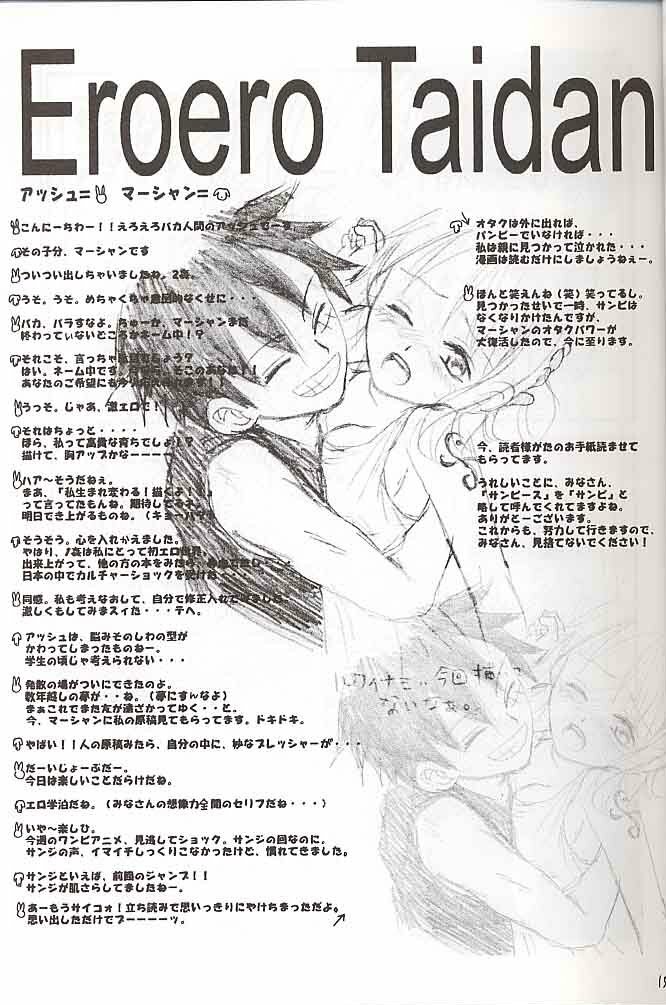 Eroero Taidan
アッシュ= マーシャン=
こんにーちわー!!えろえろバカ人間のアッシュでーす。
その子分、マーシャンです
ついつい出しちゃいましたね。2姦。
うそ。うそ。めちゃくちゃ意図的なくせに・・・
バカ、バラすなよ。ちゅーか、マーシャンまだ
終わってぃないところかネーム中!?
それこそ、言っちゃ
はい。ネーム中です。 そこのあなた!!
あなたのご希望にも今 !!
うっそ。じゃあ、激エロで!
それはちょっと・・・・
ほら、私って高貴な育ちでしょ!?
描けて、胸アップかなーーーー
ハア〜そうだねぇ。
まあ、「私生まれ変わる!描くよ!!」
って言ってたもんね。期待してるネ。
明日でき上がるものね。(キョーハク)
そうそう。心を入れかえました。
やはり、1姦は私にとって初エロ世界。
出来上がって、他の方の本をみたら、
日本の中でカルチャーショックを受けた・・・
同感。私も考えなおして、自分で修正入れて
激しくもしてみまスィた・・・テヘ。
アッシュは、脳みそのしわの型が
かわってしまったものねー。
学生の頃じゃ考えられない・・・
発散の場がついにできたのよ。
数年越しの夢が・・ね。(夢にすんなよ)
まぁこれでまた友が遠ざかってゆく・・と。
今、マーシャンに私の原稿見てもらってます。ドキドキ。
やばい!!人の原稿みたら、自分の中に、妙なプレッシャーが・・・
だーいじょーぶだー。
今日は楽しいことだらけだね。
エロ学泊だね。(みなさんの想像力全開のセリフだね・・・)
いや〜楽しひ。
今週のワンピアニメ、見逃してショック。サンジの回なのに。
サンジの声、イマイチしっくりこなかったけど、慣れてきました。
サンジといえば、前回のジャンプ!!
サンジが肌さらしてましたねー。
あーもうサイコォ!立ち読みで思いっきりにやけちまっただよ。
思い出しただけでブーーーーッ。
オタクは外に出れば、
パンピーでいなければ・・・
私は親に見つかって泣かれた・・・
漫画は読むだけにしましょうねぇー。
ほんと笑えんね(笑)笑ってるし。
見つかったせいで一時、サンピは
なくなりかけたんですが、
マーシャンのオタクパワーが
大復活したので、今に至ります。
今、読者様がたのお手紙読ませて
もらってます。
うれしいことに、みなさん、
「サンピース」を「サンピ」と
略して呼んでくれてますよね。
ありがとーございます。
これからも、努力して行きますので、
みなさん、見捨てないでください!
ルフィナミ・・今回描いて
ないなぁ。